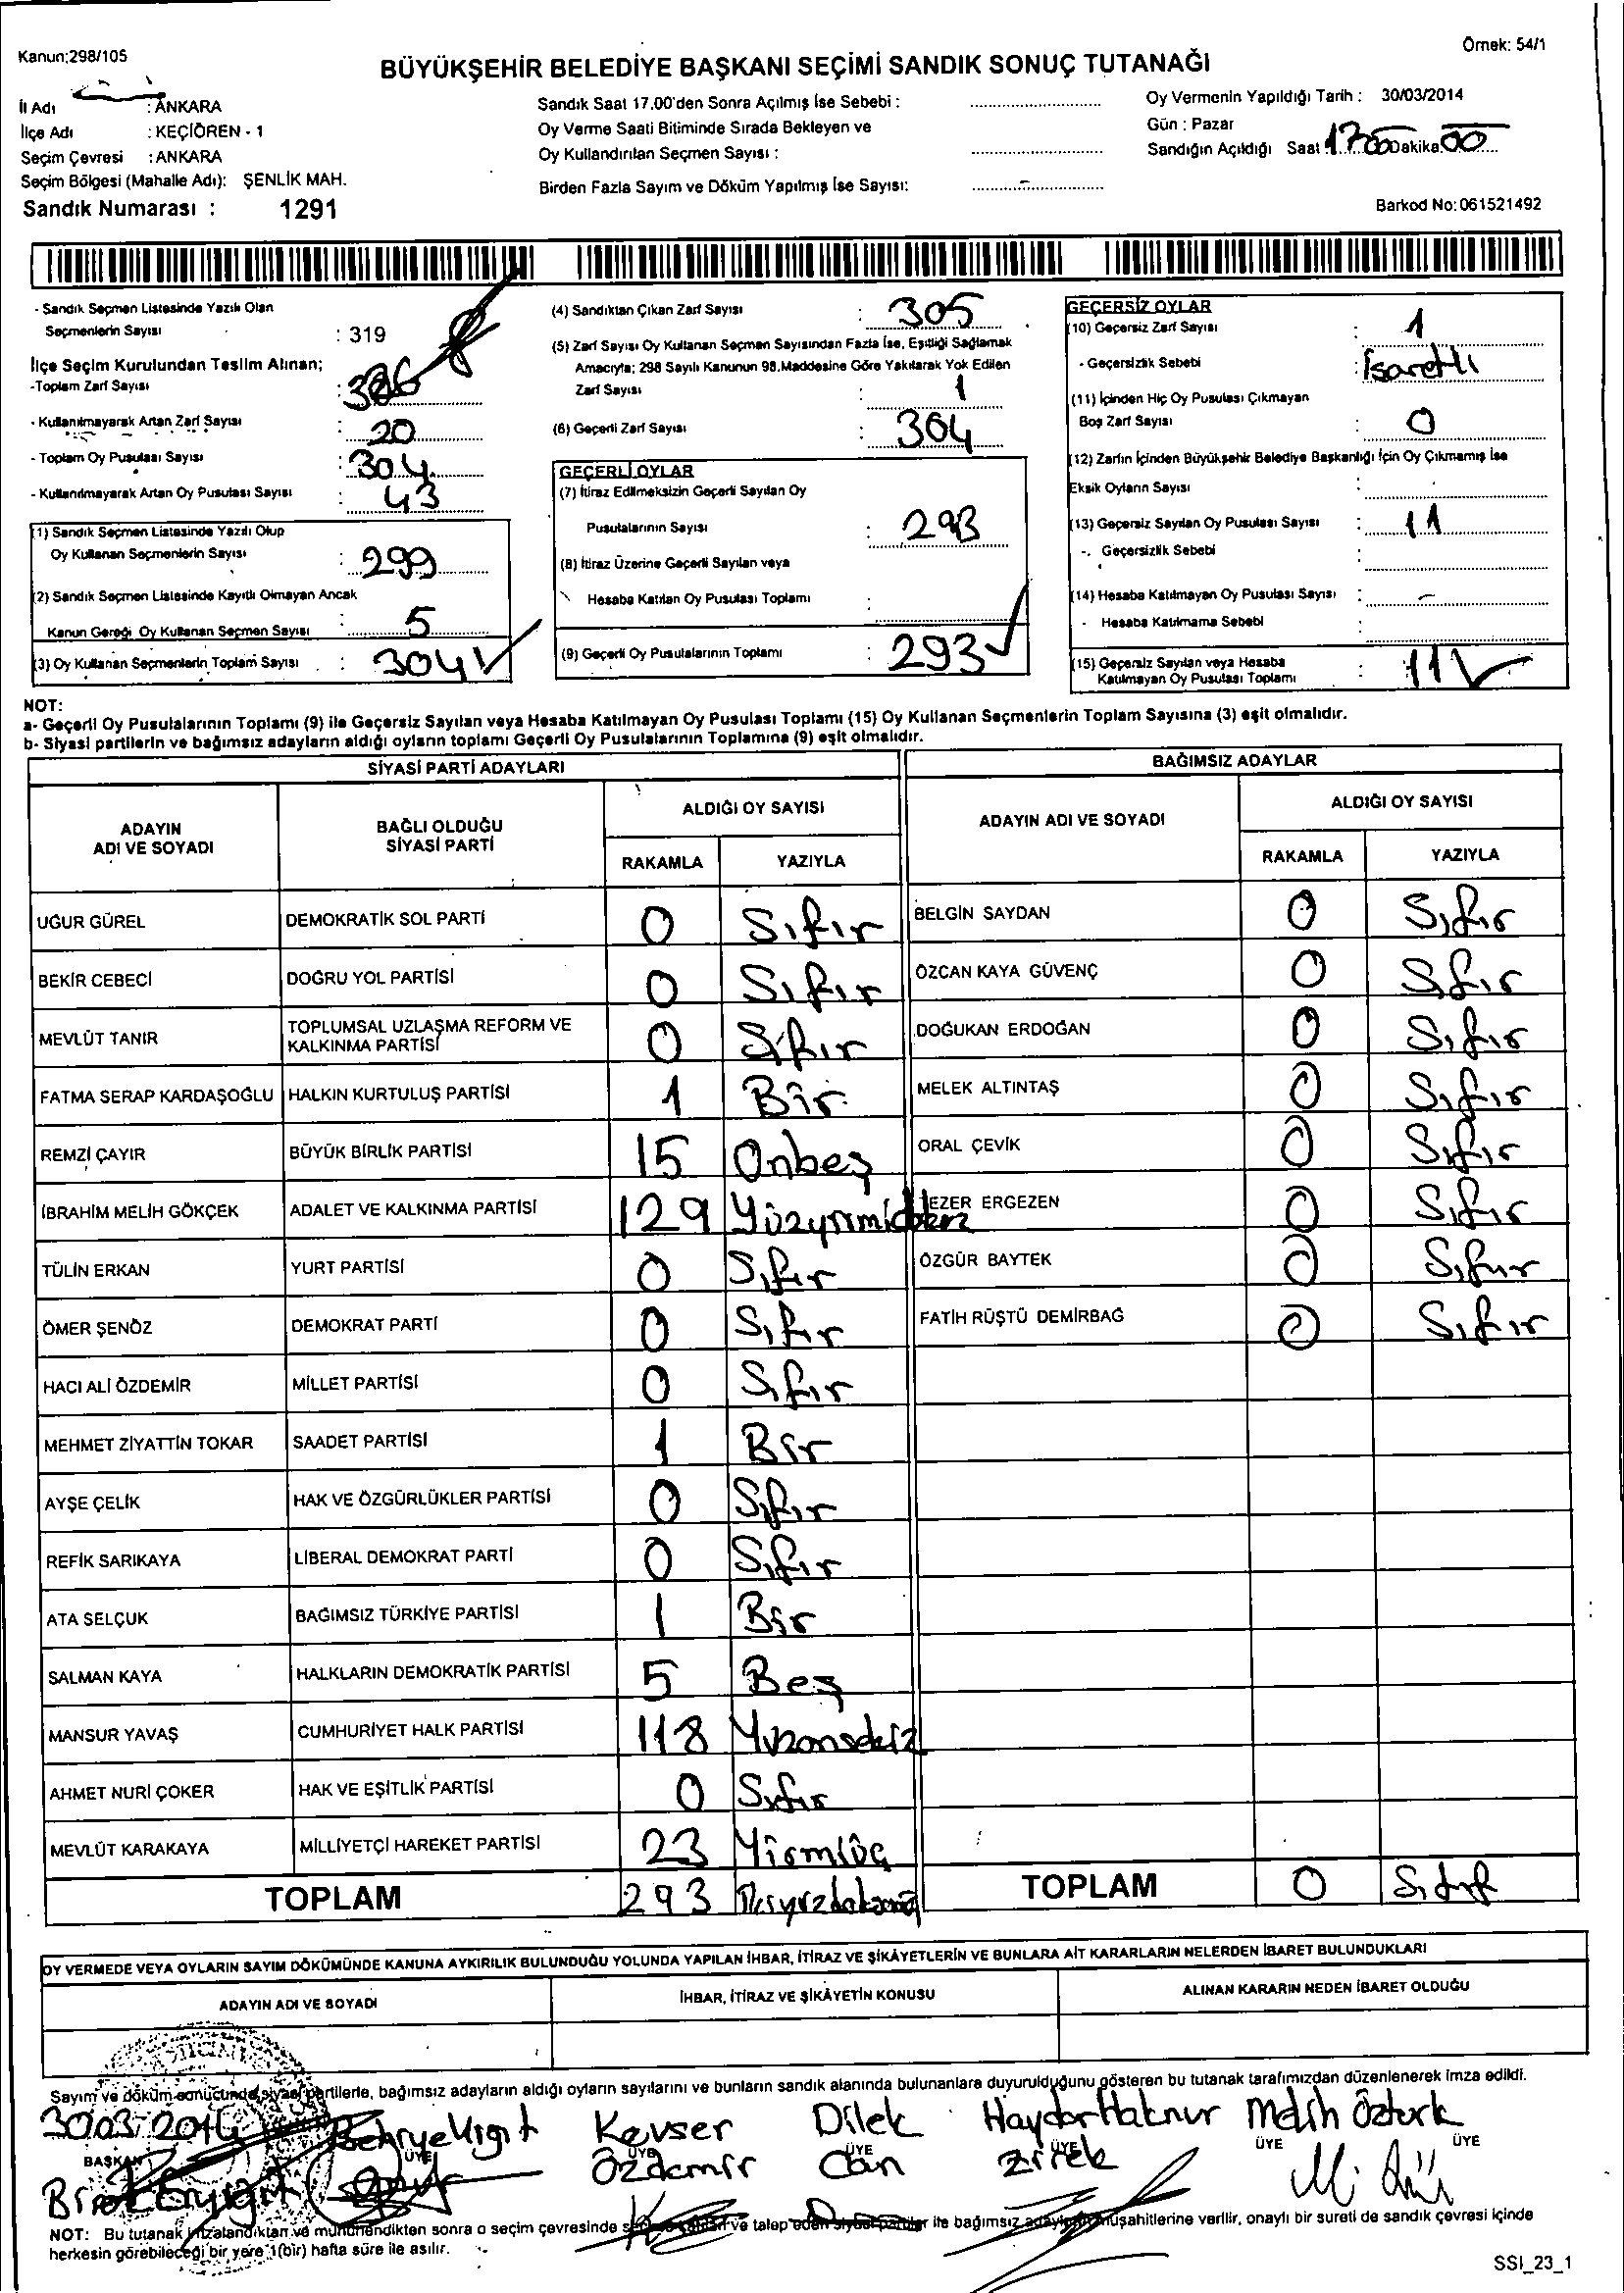 Kanun;298/105
Örnek: 54/1
BÜYÜKŞEHİR BELEDİYE BAŞKANI SEÇİMİ SANDIK SONUÇ TUTANAĞI
İl Adı : ANKARA
İlçe Adı : KEÇİÖREN - 1
Seçim Çevresi : ANKARA
Seçim Bölgesi (Mahalle Adı): ŞENLİK MAH.
Sandık Numarası : 1291
Sandık Saat 17.00'den Sonra Açılmış İse Sebebi :
Oy Verme Saati Bitiminde Sırada Bekleyen ve
Oy Kullandırılan Seçmen Sayısı :
Birden Fazla Sayım ve Döküm Yapılmış İse Sayısı: -
Oy Vermenin Yapıldığı Tarih : 30/03/2014
Gün : Pazar
Sandığın Açıldığı Saat 17 00 Dakika 00
Barkod No: 061521492
- Sandık Seçmen Listesinde Yazılı Olan
Seçmenlerin Sayısı : 319
İlçe Seçim Kurulundan Teslim Alınan;
-Toplam Zarf Sayısı :
- Kullanılmayarak Artan Zarf Sayısı : 20
- Toplam Oy Pusulası Sayısı : 304
- Kullanılmayarak Artan Oy Pusulası Sayısı : 43
(1) Sandık Seçmen Listesinde Yazılı Olup
Oy Kullanan Seçmenlerin Sayısı : 299
(2) Sandık Seçmen Listesinde Kayıtlı Olmayan Ancak
Kanun Gereği Oy Kullanan Seçmen Sayısı : 5
(3) Oy Kullanan Seçmenlerin Toplam Sayısı : 304
(4) Sandıktan Çıkan Zarf Sayısı : 305
(5) Zarf Sayısı Oy Kullanan Seçmen Sayısından Fazla İse, Eşitliği Sağlamak
Amacıyla; 298 Sayılı Kanunun 98.Maddesine Göre Yakılarak Yok Edilen
Zarf Sayısı : 1
(6) Geçerli Zarf Sayısı : 304
GEÇERLİ OYLAR
(7) İtiraz Edilmeksizin Geçerli Sayılan Oy
Pusulalarının Sayısı : 293
(8) İtiraz Üzerine Geçerli Sayılan veya
Hesaba Katılan Oy Pusulası Toplamı :
(9) Geçerli Oy Pusulalarının Toplamı : 293
GEÇERSİZ OYLAR
(10) Geçersiz Zarf Sayısı : 1
- Geçersizlik Sebebi : İşaretli
(11) İçinden Hiç Oy Pusulası Çıkmayan
Boş Zarf Sayısı : 0
(12) Zarfın İçinden Büyükşehir Belediye Başkanlığı İçin Oy Çıkmamış İse
Eksik Oyların Sayısı :
(13) Geçersiz Sayılan Oy Pusulası Sayısı : 11
- Geçersizlik Sebebi
(14) Hesaba Katılmayan Oy Pusulası Sayısı : -
- Hesaba Katılmama Sebebi
(15) Geçersiz Sayılan veya Hesaba
Katılmayan Oy Pusulası Toplamı : 11
NOT:
a- Geçerli Oy Pusulalarının Toplamı (9) ile Geçersiz Sayılan veya Hesaba Katılmayan Oy Pusulası Toplamı (15) Oy Kullanan Seçmenlerin Toplam Sayısına (3) eşit olmalıdır.
b- Siyasi partilerin ve bağımsız adayların aldığı oyların toplamı Geçerli Oy Pusulalarının Toplamına (9) eşit olmalıdır.
SİYASİ PARTİ ADAYLARI
ADAYIN ADI VE SOYADI BAĞLI OLDUĞU SİYASİ PARTİ ALDIĞI OY SAYISI
RAKAMLA YAZIYLA
UĞUR GÜREL DEMOKRATİK SOL PARTİ 0 Sıfır
BEKİR CEBECİ DOĞRU YOL PARTİSİ 0 Sıfır
MEVLÜT TANIR TOPLUMSAL UZLAŞMA REFORM VE KALKINMA PARTİSİ 0 Sıfır
FATMA SERAP KARDAŞOĞLU HALKIN KURTULUŞ PARTİSİ 1 Bir
REMZİ ÇAYIR BÜYÜK BİRLİK PARTİSİ 15 Onbeş
İBRAHİM MELİH GÖKÇEK ADALET VE KALKINMA PARTİSİ 129 Yüzyirmidokuz
TÜLİN ERKAN YURT PARTİSİ 0 Sıfır
ÖMER ŞENÖZ DEMOKRAT PARTİ 0 Sıfır
HACI ALİ ÖZDEMİR MİLLET PARTİSİ 0 Sıfır
MEHMET ZİYATTİN TOKAR SAADET PARTİSİ 1 Bir
AYŞE ÇELİK HAK VE ÖZGÜRLÜKLER PARTİSİ 0 Sıfır
REFİK SARIKAYA LİBERAL DEMOKRAT PARTİ 0 Sıfır
ATA SELÇUK BAĞIMSIZ TÜRKİYE PARTİSİ 1 Bir
SALMAN KAYA HALKLARIN DEMOKRATİK PARTİSİ 5 Beş
MANSUR YAVAŞ CUMHURİYET HALK PARTİSİ 118 Yüzonsekiz
AHMET NURİ ÇOKER HAK VE EŞİTLİK PARTİSİ 0 Sıfır
MEVLÜT KARAKAYA MİLLİYETÇİ HAREKET PARTİSİ 23 Yirmiüç
TOPLAM 293
BAĞIMSIZ ADAYLAR
ADAYIN ADI VE SOYADI ALDIĞI OY SAYISI
RAKAMLA YAZIYLA
BELGİN SAYDAN 0 Sıfır
ÖZCAN KAYA GÜVENÇ 0 Sıfır
DOĞUKAN ERDOĞAN 0 Sıfır
MELEK ALTINTAŞ 0 Sıfır
ORAL ÇEVİK 0 Sıfır
EZER ERGEZEN 0 Sıfır
ÖZGÜR BAYTEK 0 Sıfır
FATİH RÜŞTÜ DEMİRBAĞ 0 Sıfır
TOPLAM 0 Sıfır
OY VERMEDE VEYA OYLARIN SAYIM DÖKÜMÜNDE KANUNA AYKIRILIK BULUNDUĞU YOLUNDA YAPILAN İHBAR, İTİRAZ VE ŞİKÂYETLERİN VE BUNLARA AİT KARARLARIN NELERDEN İBARET BULUNDUKLARI
ADAYIN ADI VE SOYADI İHBAR, İTİRAZ VE ŞİKÂYETİN KONUSU ALINAN KARARIN NEDEN İBARET OLDUĞU
Sayım ve döküm sonucunda siyasi partilerle, bağımsız adayların aldığı oyların sayılarını ve bunların sandık alanında bulunanlara duyurulduğunu gösteren bu tutanak tarafımızdan düzenlenerek imza edildi.
30 03/2014 Kevser Dilek Haydar Haknur Melih Öztürk
BAŞKAN ÜYE ÜYE ÜYE ÜYE ÜYE ÜYE
Özdemir Can Zirek
NOT: Bu tutanak imzalandıktan ve mühürlendikten sonra o seçim çevresinde ve talep eden siyasi partiler ile bağımsız müşahitlerine verilir, onaylı bir sureti de sandık çevresi içinde
herkesin görebileceği bir yere 1(bir) hafta süre ile asılır.
SSI_23_1